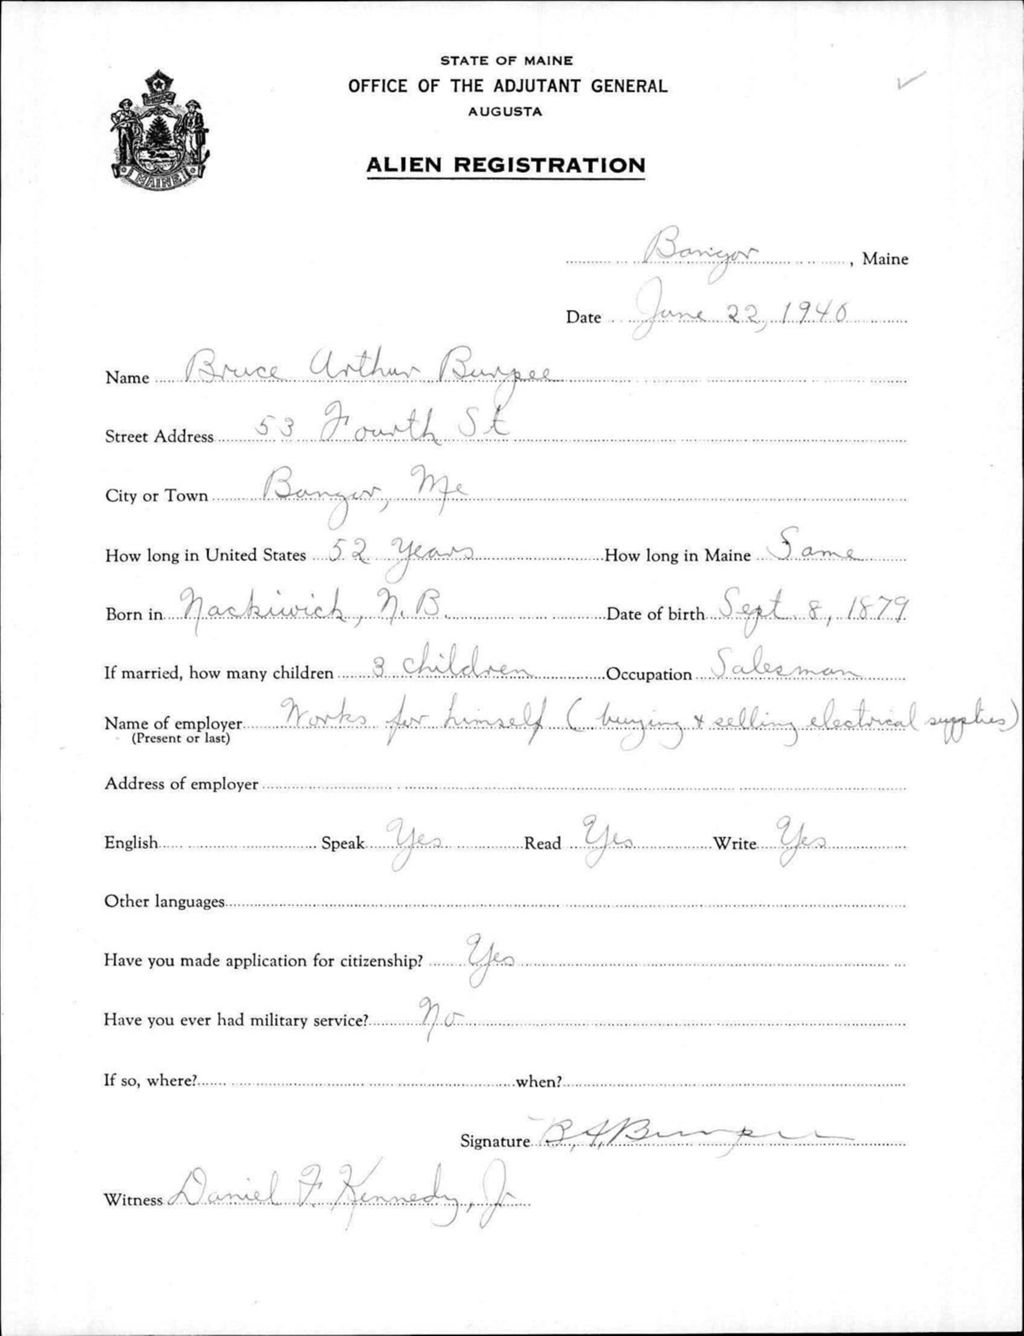 STATE OF MAINE
OFFICE OF THE ADJUTANT GENERAL
AUGUSTA
ALIEN REGISTRATION
MAINE
Bangor, Maine
Date June 22, 1940
Name Bruce Arthur Burpee
Street Address 53 Fourth St
City or Town Bangor, Me
How long in United States 52 years How long in Maine Same
Born in Nackiwick, N.B. Date of birth Sept. 8, 1879
If married, how many children 3 children Occupation Salesman
Name of employer Works for himself (buying + selling electrical supplies)
(Present or last)
Address of employer
English Speak Yes Read Yes Write Yes
Other languages
Have you made application for citizenship? Yes
Have you ever had military service? No
If so, where? when?
Signature B. A. Burpee
Witness Daniel F. Kennedy, Jr